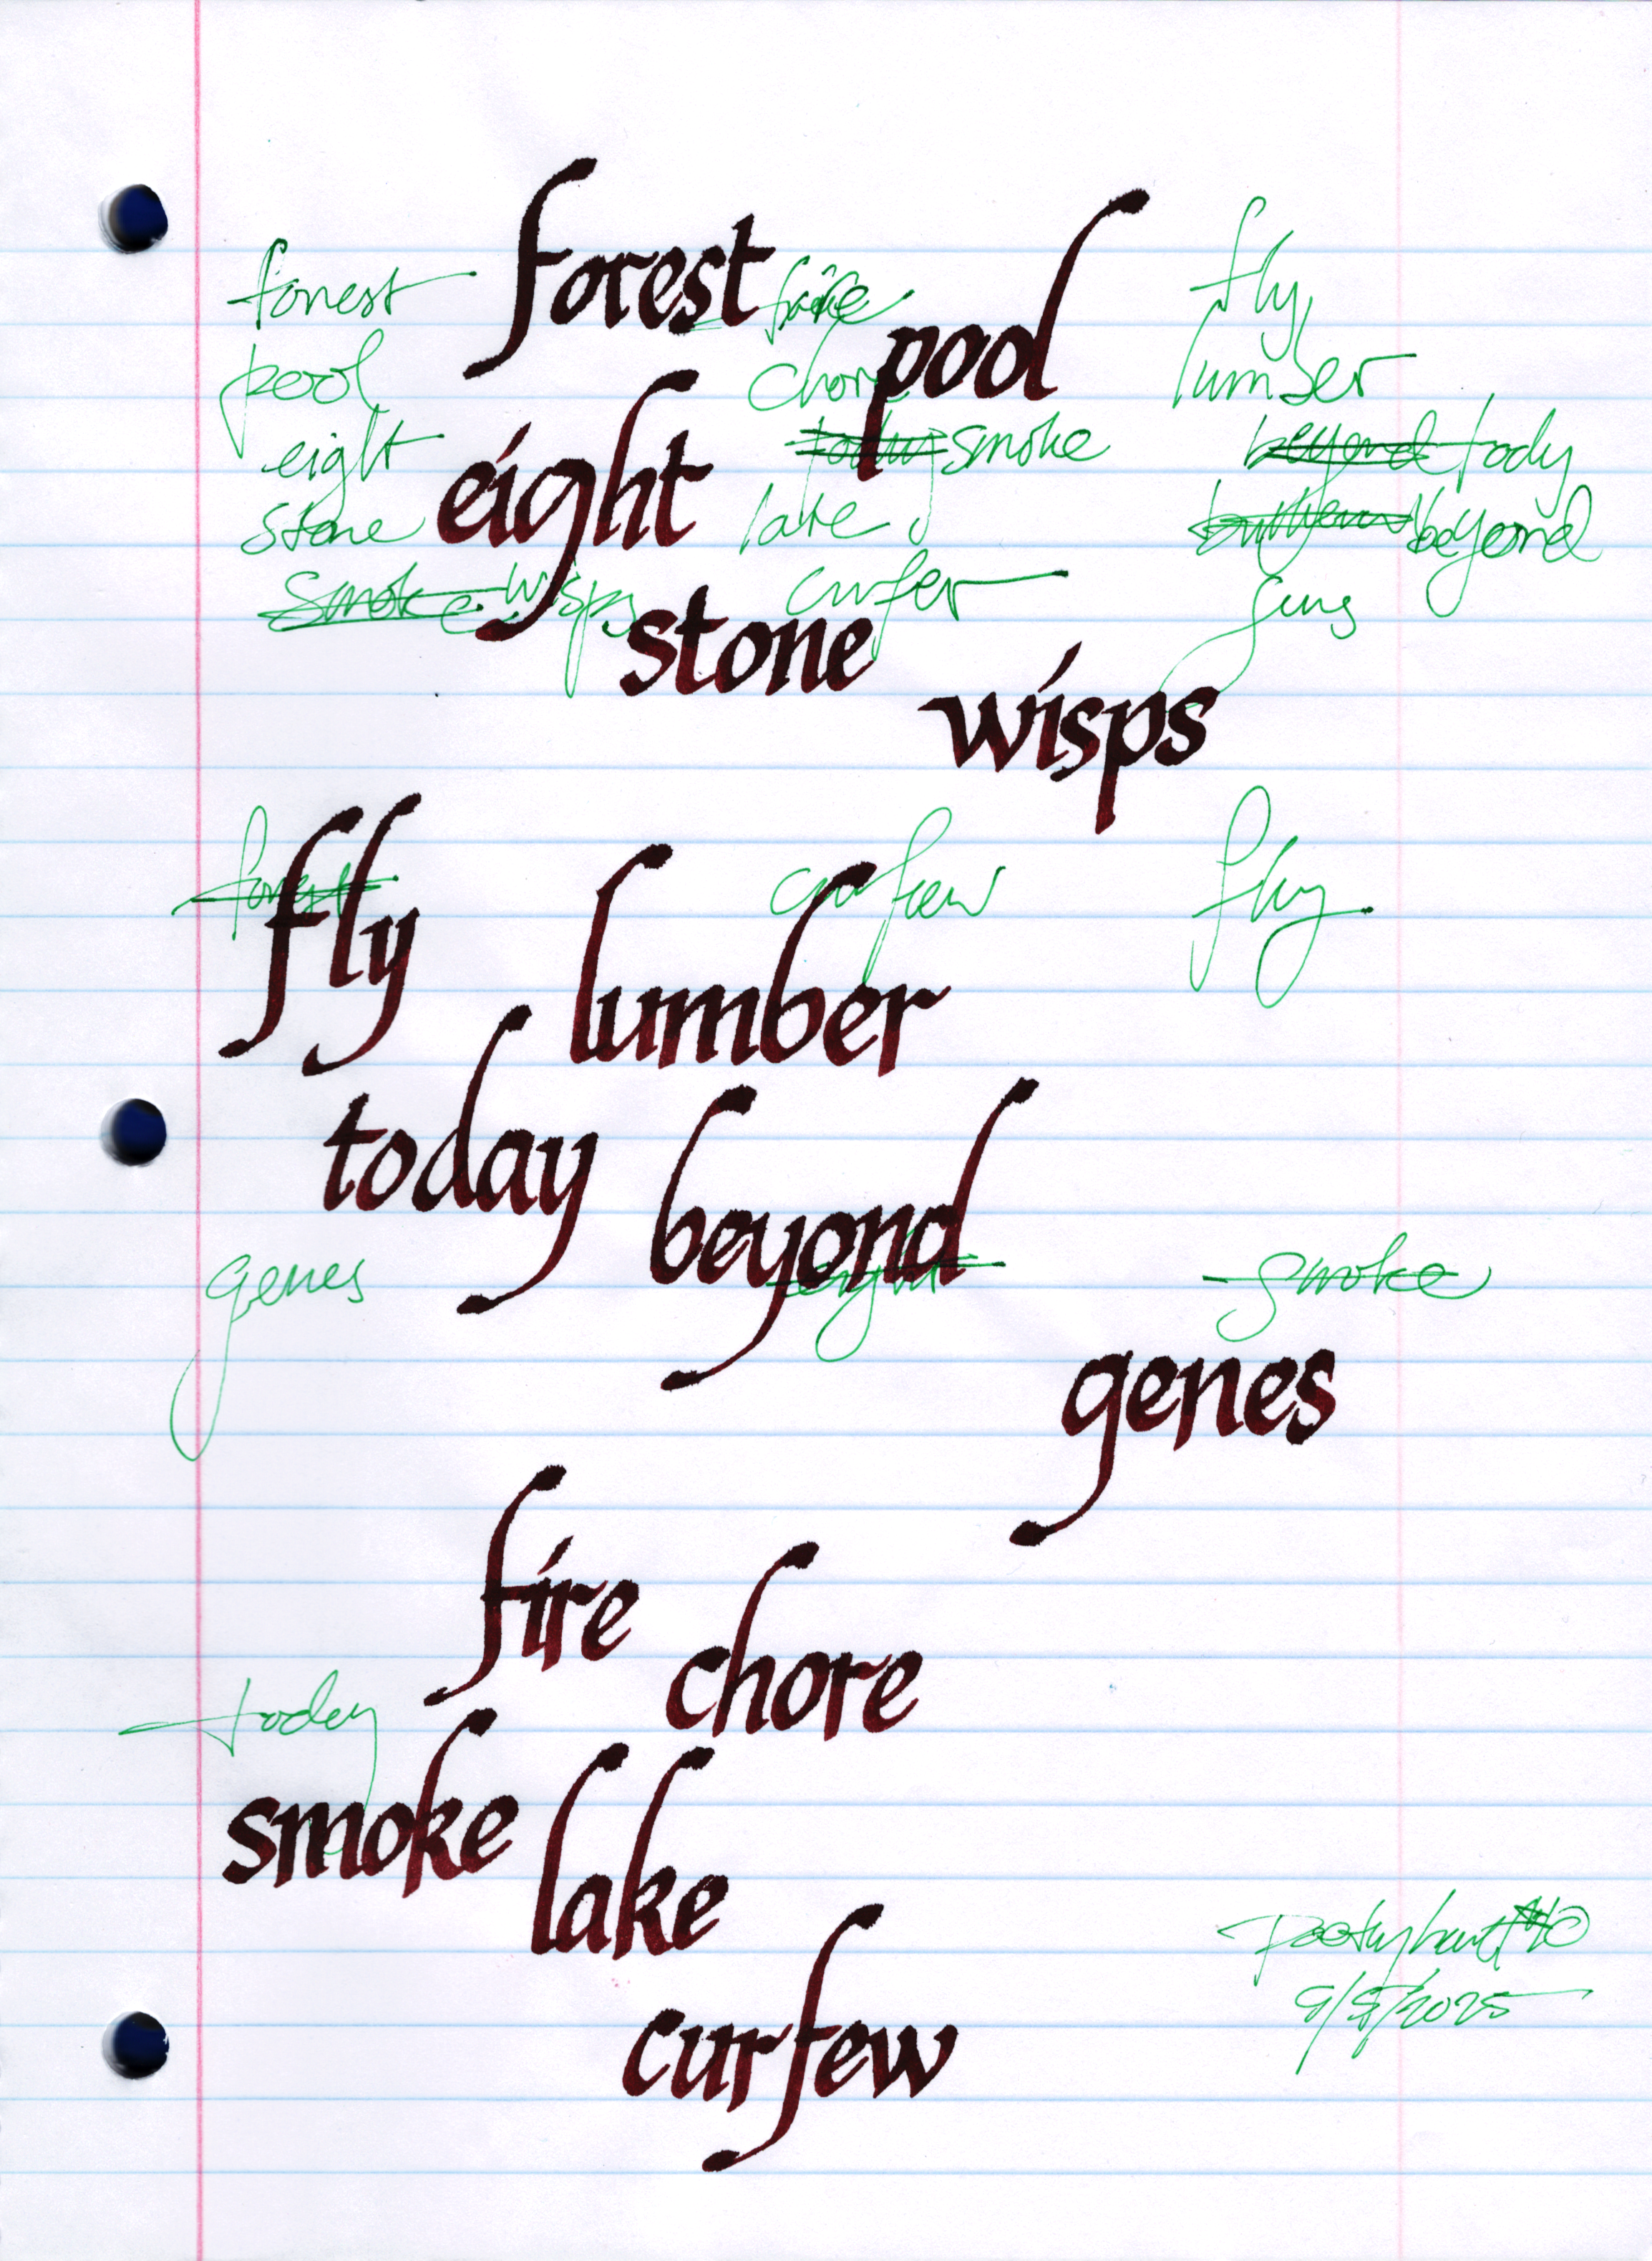 forest
pool
eight
stone
wisps
fly
lumber
today
beyond
genes
fire
chore
smoke
lake
curfew
forest fire fly
pool chore lumber
eight today smoke beyond tody
stone lake beyond
smoke wisps curfew
forest curfew fly
genes eight smoke
today
9/8/2025